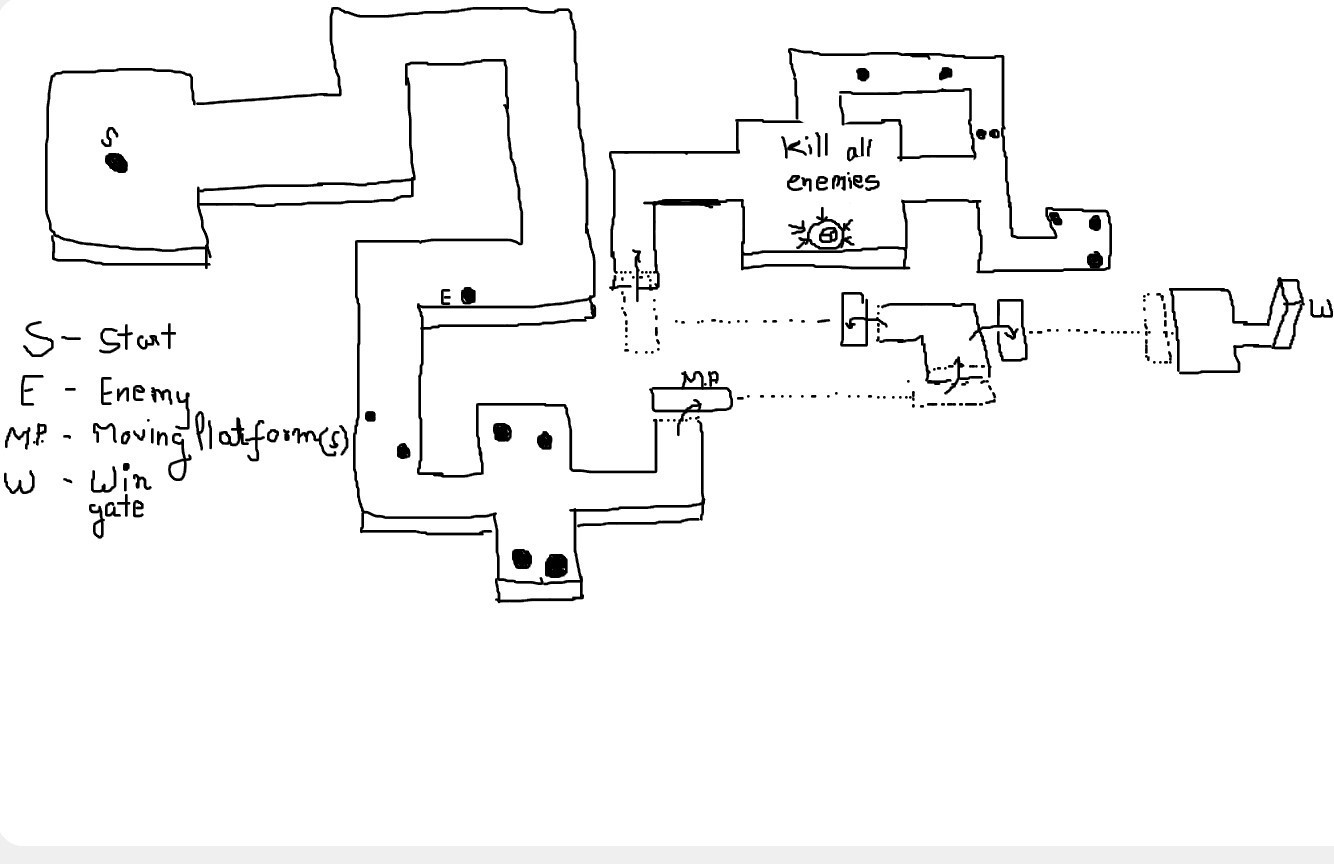 S
Kill all
enemies
E
W
S - Start
E - Enemy
M.P
M.P. - Moving Platform(s)
W - Win
gate